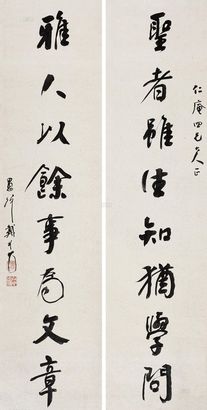 仁庵四兄大人正
聖者雖生知猶學問
雅人以餘事為文章